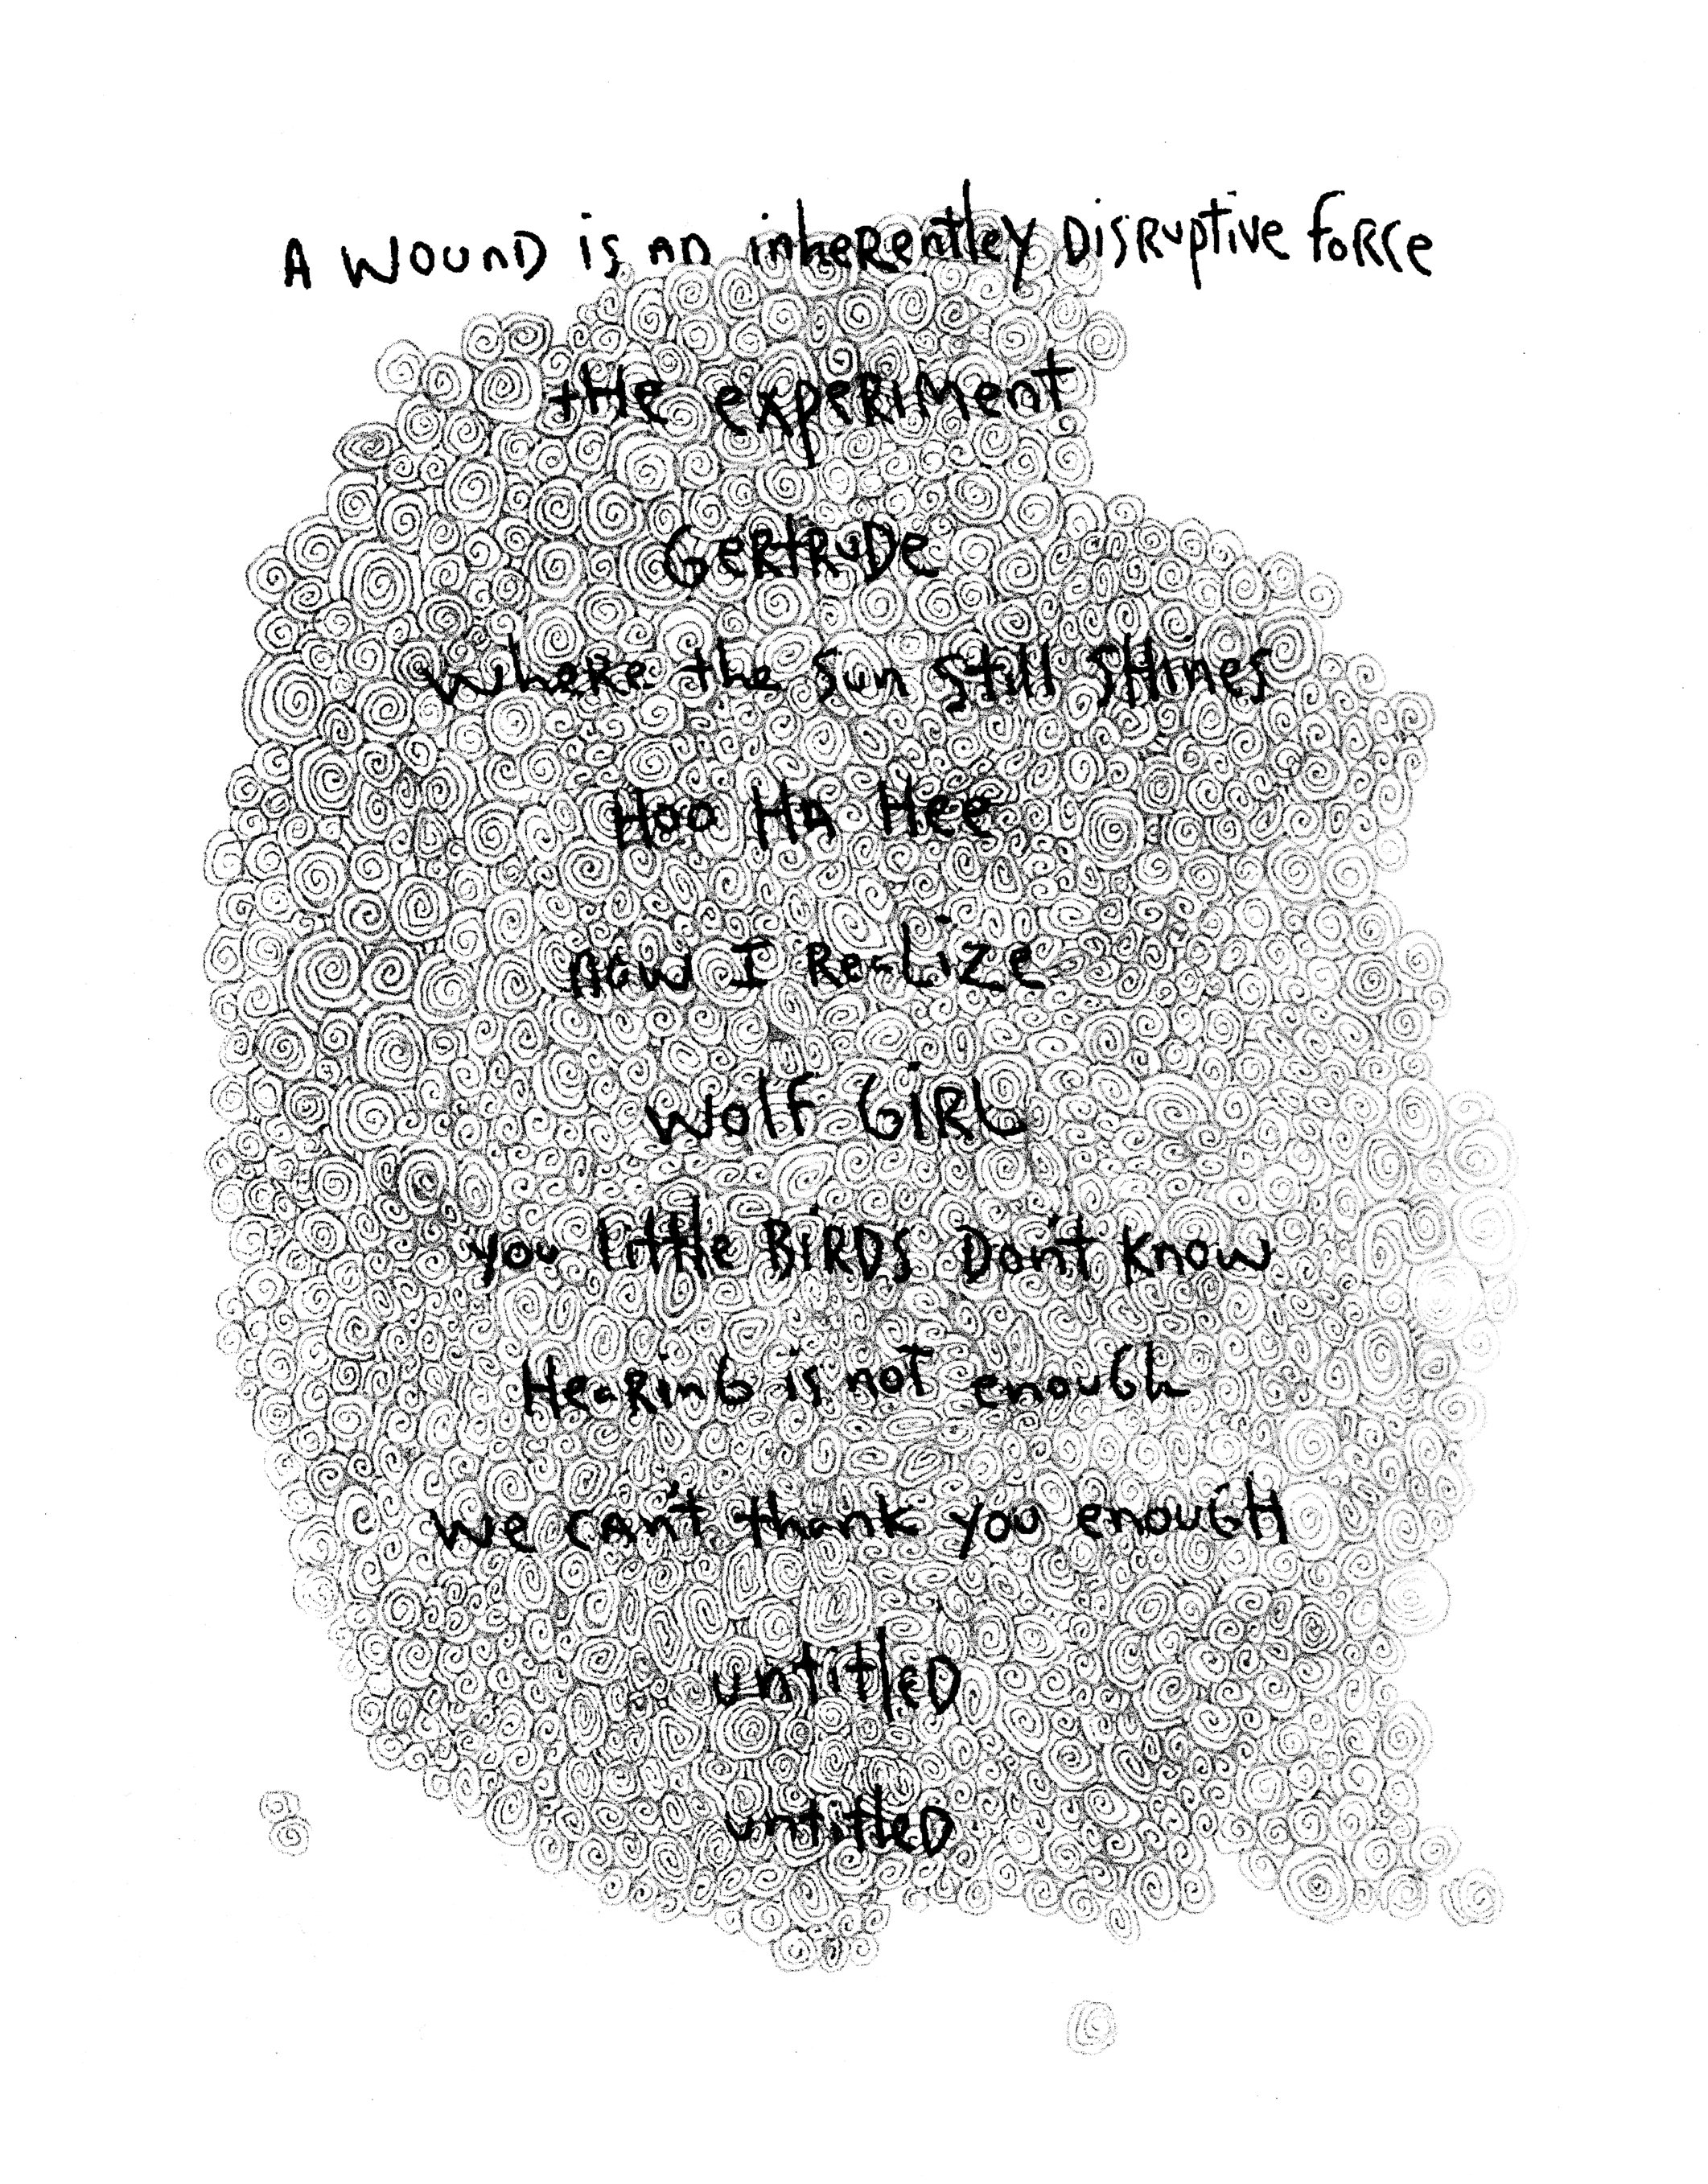 A WOUnD is an inheRentley DisRuptive foRce
tHe expeRiMent
GeRtRuDe
wheRe the sun still sHines
Hoo Ha Hee
now I Realize
wolf GiRL
you little BiRDS Don't know
HeaRinG is not enouGh
we can't thank you enouGH
untitleD
untitleD